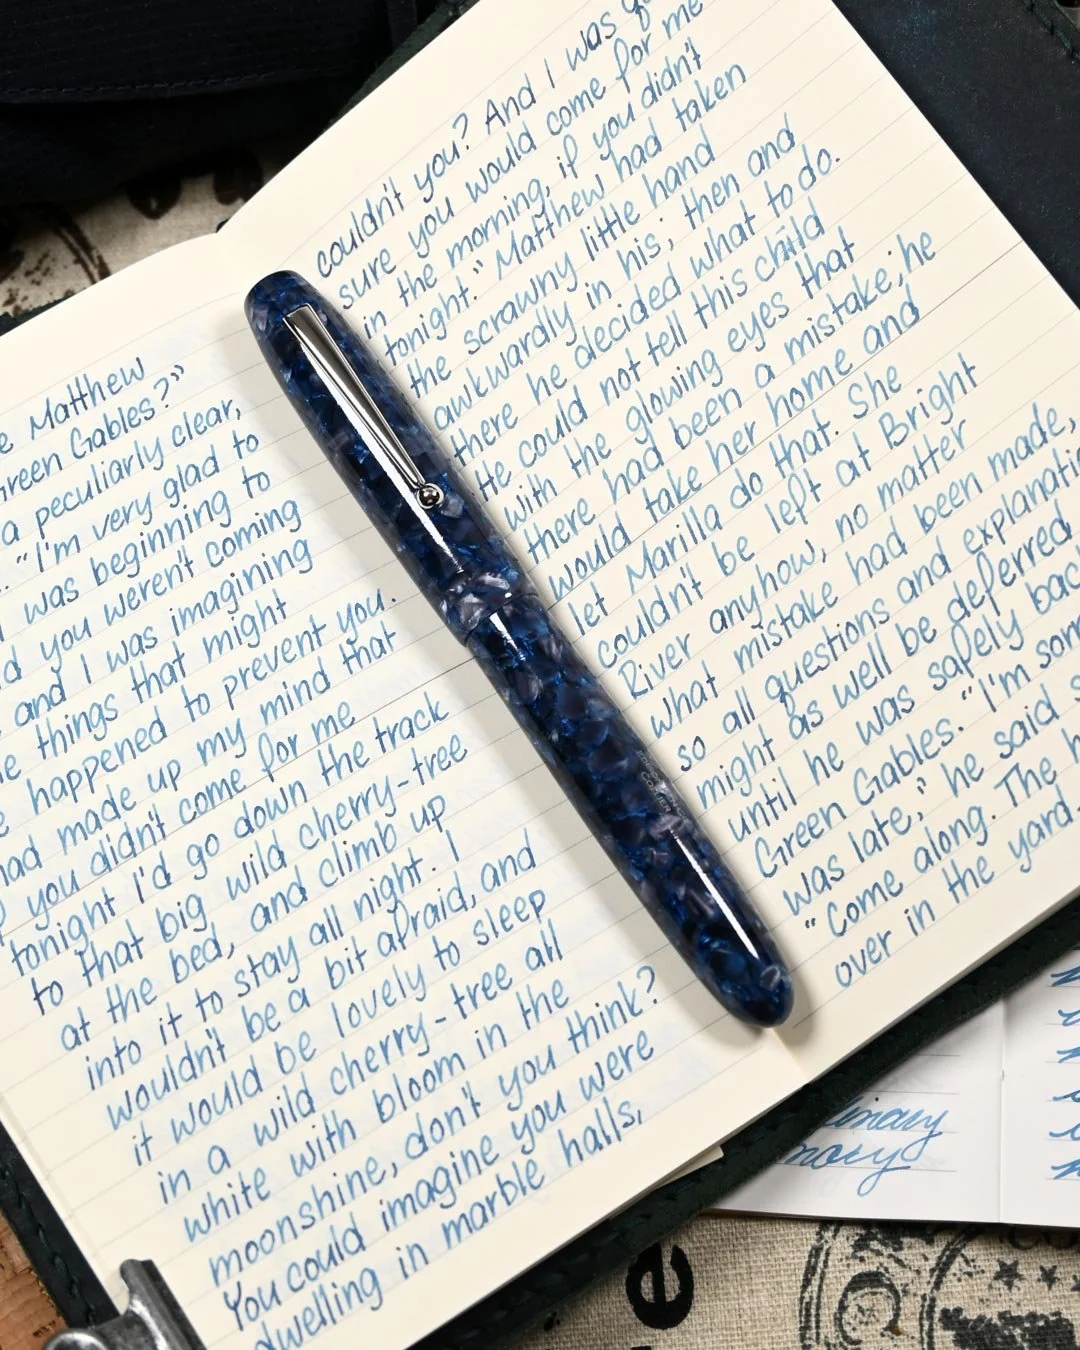 Matthew
Green Gables?"
a peculiarly clear,
"I'm very glad to
was beginning to
you weren't coming
and I was imagining
things that might
happened to prevent you.
had made up my mind that
you didn't come for me
tonight I'd go down the track
to that big wild cherry-tree
at the bed, and climb up
into it to stay all night. I
wouldn't be a bit afraid, and
it would be lovely to sleep
in a wild cherry-tree all
white with bloom in the
moonshine, don't you think?
You could imagine you were
dwelling in marble halls,
couldn't you? And I was
sure you would come for me
in the morning, if you didn't
tonight." Matthew had taken
the scrawny little hand
awkwardly in his; then and
there he decided what to do.
He could not tell this child
with the glowing eyes that
there had been a mistake; he
would take her home and
let Marilla do that. She
couldn't be left at Bright
River anyhow, no matter
what mistake had been made,
so all questions and
might as well be deferred
until he was safely
Green Gables. "I'm
was late," he said
"Come along. The
over in the yard